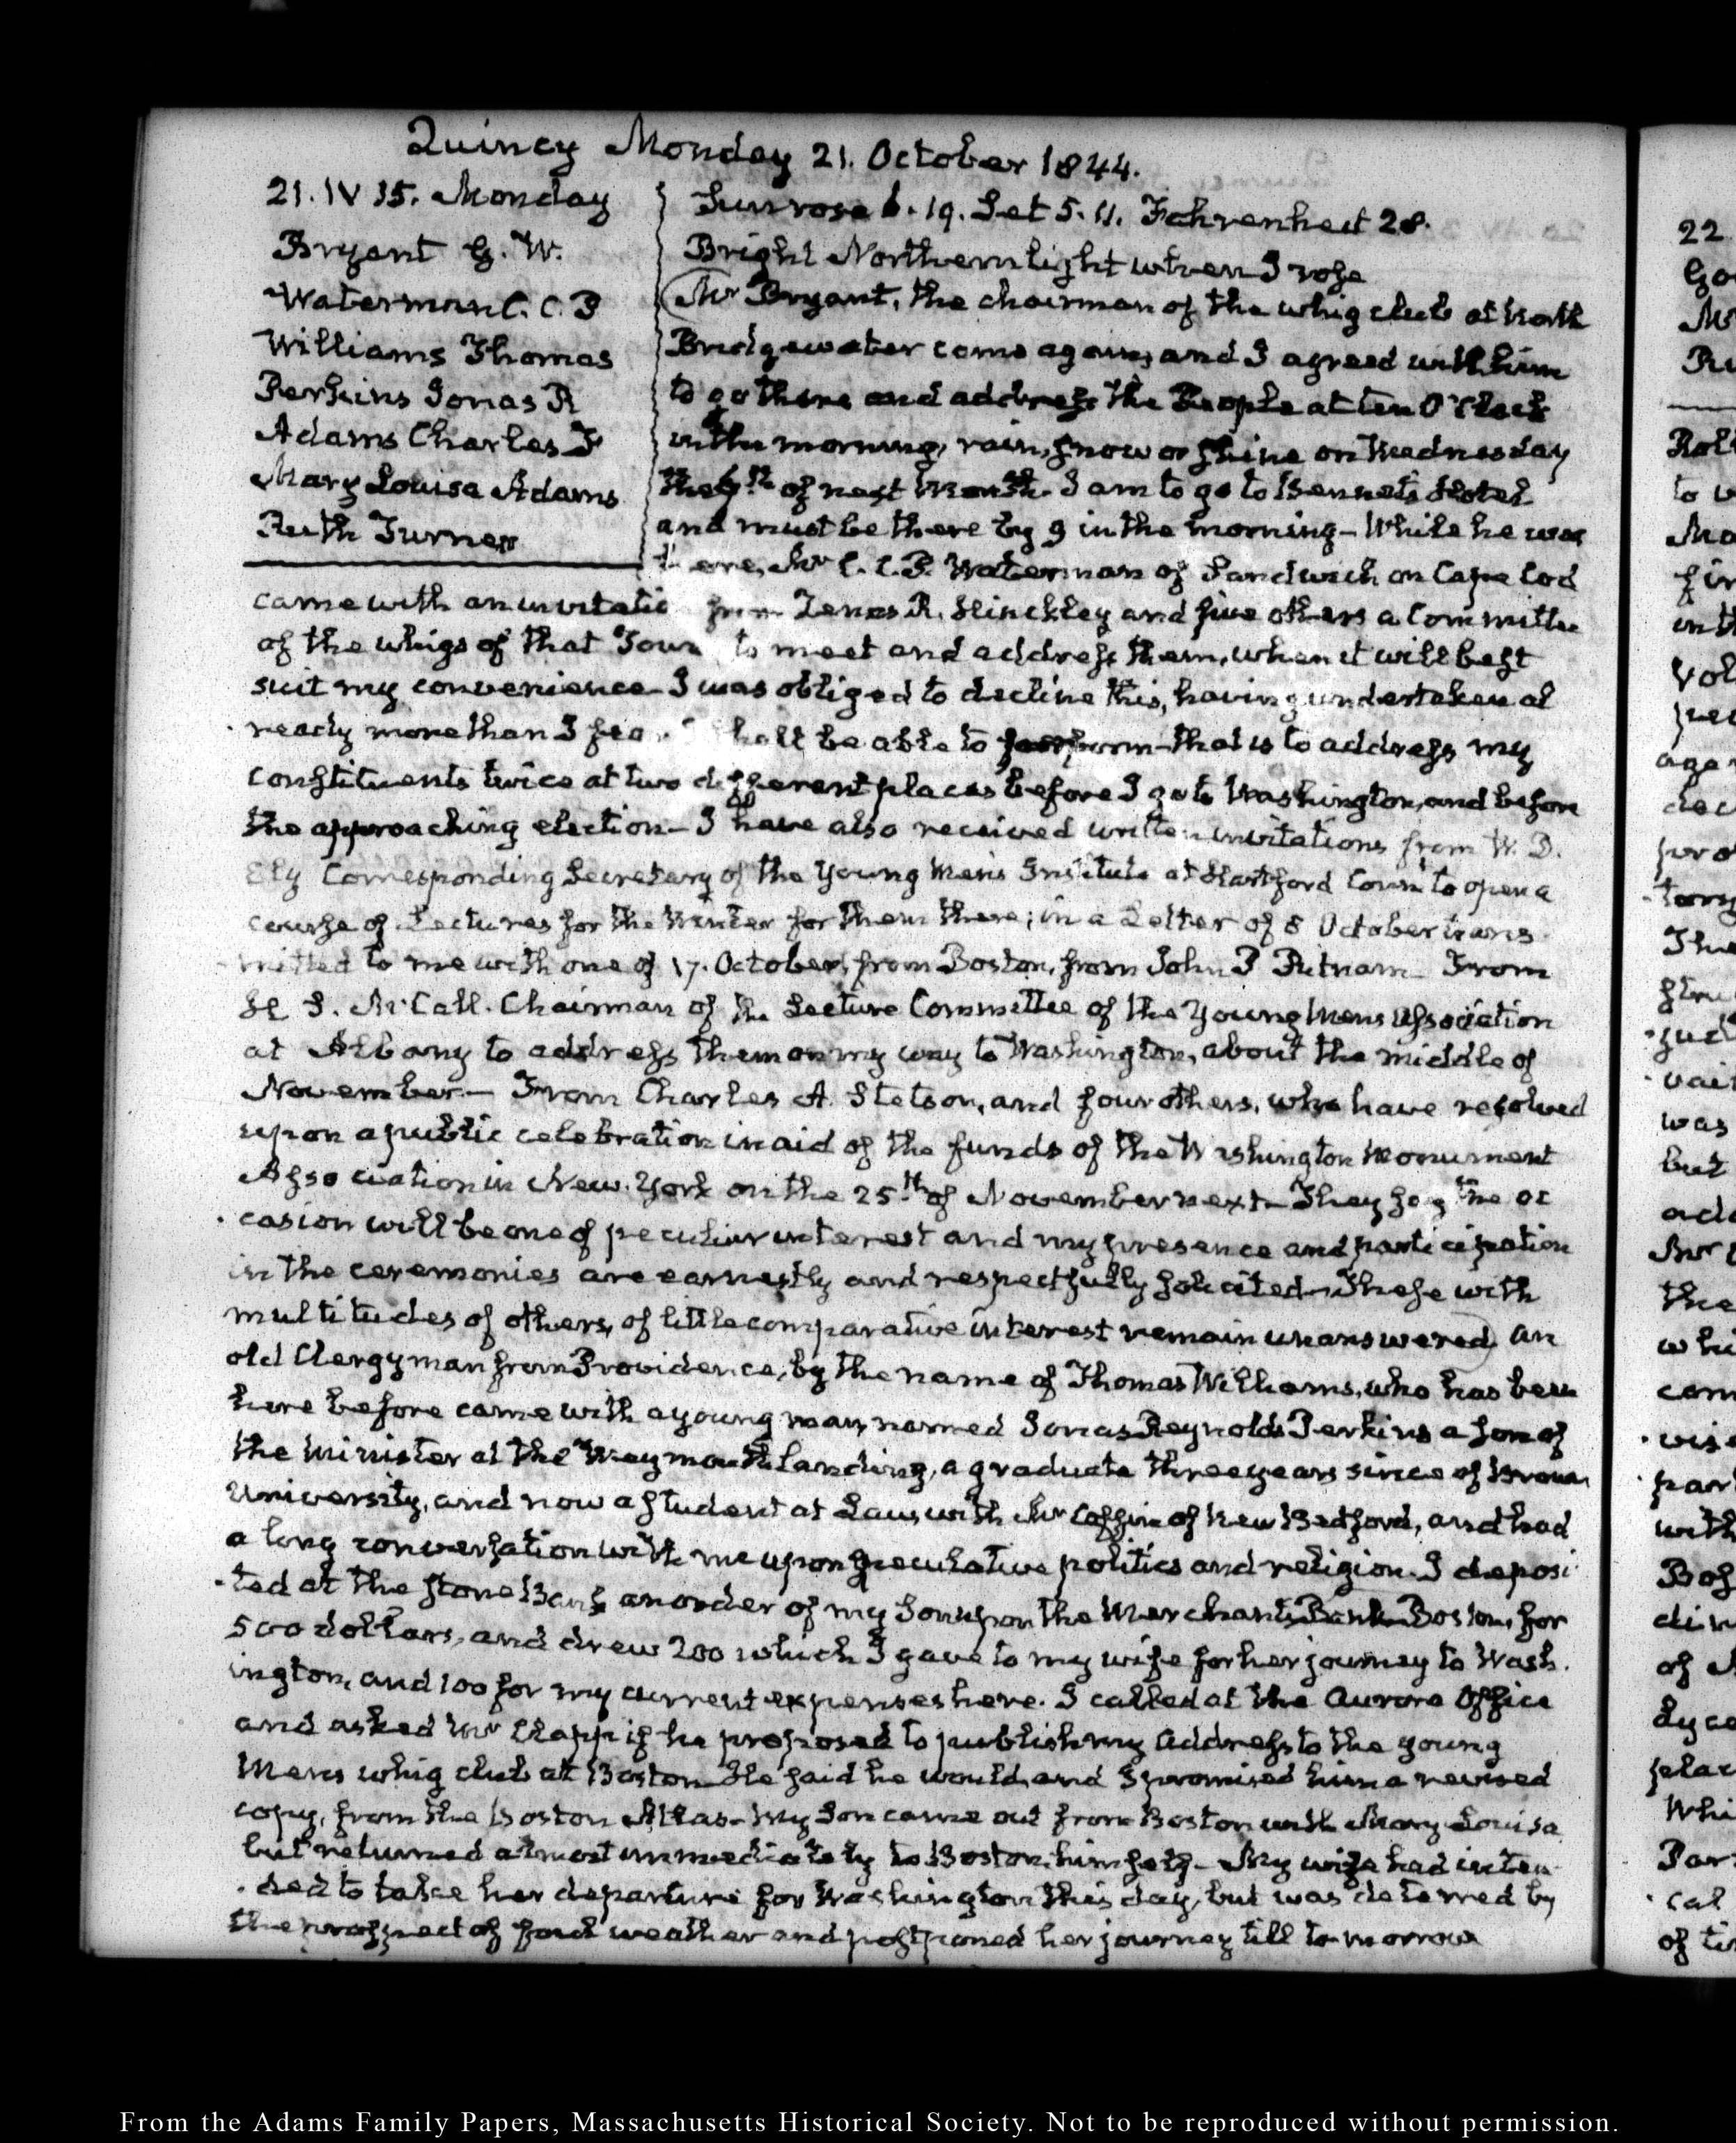 Quincy Monday 21. October 1844.
21. IV 35. Monday
Bryant G. W.
Waterman C. C. P
Williams Thomas
Perkins Jonas R
Adams Charles F
Mary Louisa Adams
Ruth Turner
Sun rose 6.19. Set 5.11. Fahrenheit 28.
Bright Northern light when I rose
Mr Bryant, the chairman of the whig club at North
Bridgewater came again, and I agreed with him
to go there and address the People at ten O'Clock
in the morning, rain, snow or shine on Wednesday
the 6th of next Month. I am to go to Bennet's Hotel
and must be there by 9 in the morning— While he was
here, Mr C. C. P. Waterman of Sandwich on Cape Cod
came with an invitatio from Zenas R. Hinckley and five others a Committee
of the whigs of that Town to meet and address them, when it will best
suit my convenience— I was obliged to decline this, having undertaken al
ready more than I fear I shall be able to perform— that is to address my
constituents twice at two different places before I go to Washington, and before
the approaching election— I have also received written invitations from W. D.
Ely Corresponding Secretary of the Young Men's Institute at Hartford Conn to open a
course of Lectures for the Winter for them there; in a Letter of 8 October trans
mitted to me with one of 17. October, from Boston, from John P Putnam— From
H S. McCall. Chairman of the Lecture Committee of the Young Mens Association
at Albany to address them on my way to Washington, about the middle of
November— From Charles A. Stetson, and four others, who have resolved
upon a public celebration in aid of the funds of the Washington Monument
Association in New-York on the 25th of November next— They say the oc
casion will be one of peculiar interest and my presence and participation
in the ceremonies are earnestly and respectfully solicited— These with
multitudes of others, of little comparative interest remain unanswered) An
old Clergyman from Providence, by the name of Thomas Williams, who has been
here before came with a young man, named Jonas Reynolds Perkins a son of
the Minister at the Weymouth Landing, a graduate three years since of Brown
University, and now a student at Law, with Mr Coffin of New Bedford, and had
a long conversation with me upon speculative politics and religion. I deposi
ted at the Stone Bank an order of my Son upon the Merchants Bank Boston, for
500 dollars, and drew 200 which I gave to my wife for her journey to Wash.
ington, and 100 for my current expenses here. I called at the Aurora Office
and asked Mr Clapp if he proposed to publish my Address to the young
Mens whig club at Boston— He said he would, and I promised him a revised
copy, from the Boston Atlas— My Son came out from Boston with Mary Louisa
but returned almost immediately to Boston himself— My wife had inten
ded to take her departure for Washington this day, but was deterred by
the prospect of foul weather and postponed her journey till to-morrow
From the Adams Family Papers, Massachusetts Historical Society. Not to be reproduced without permission.